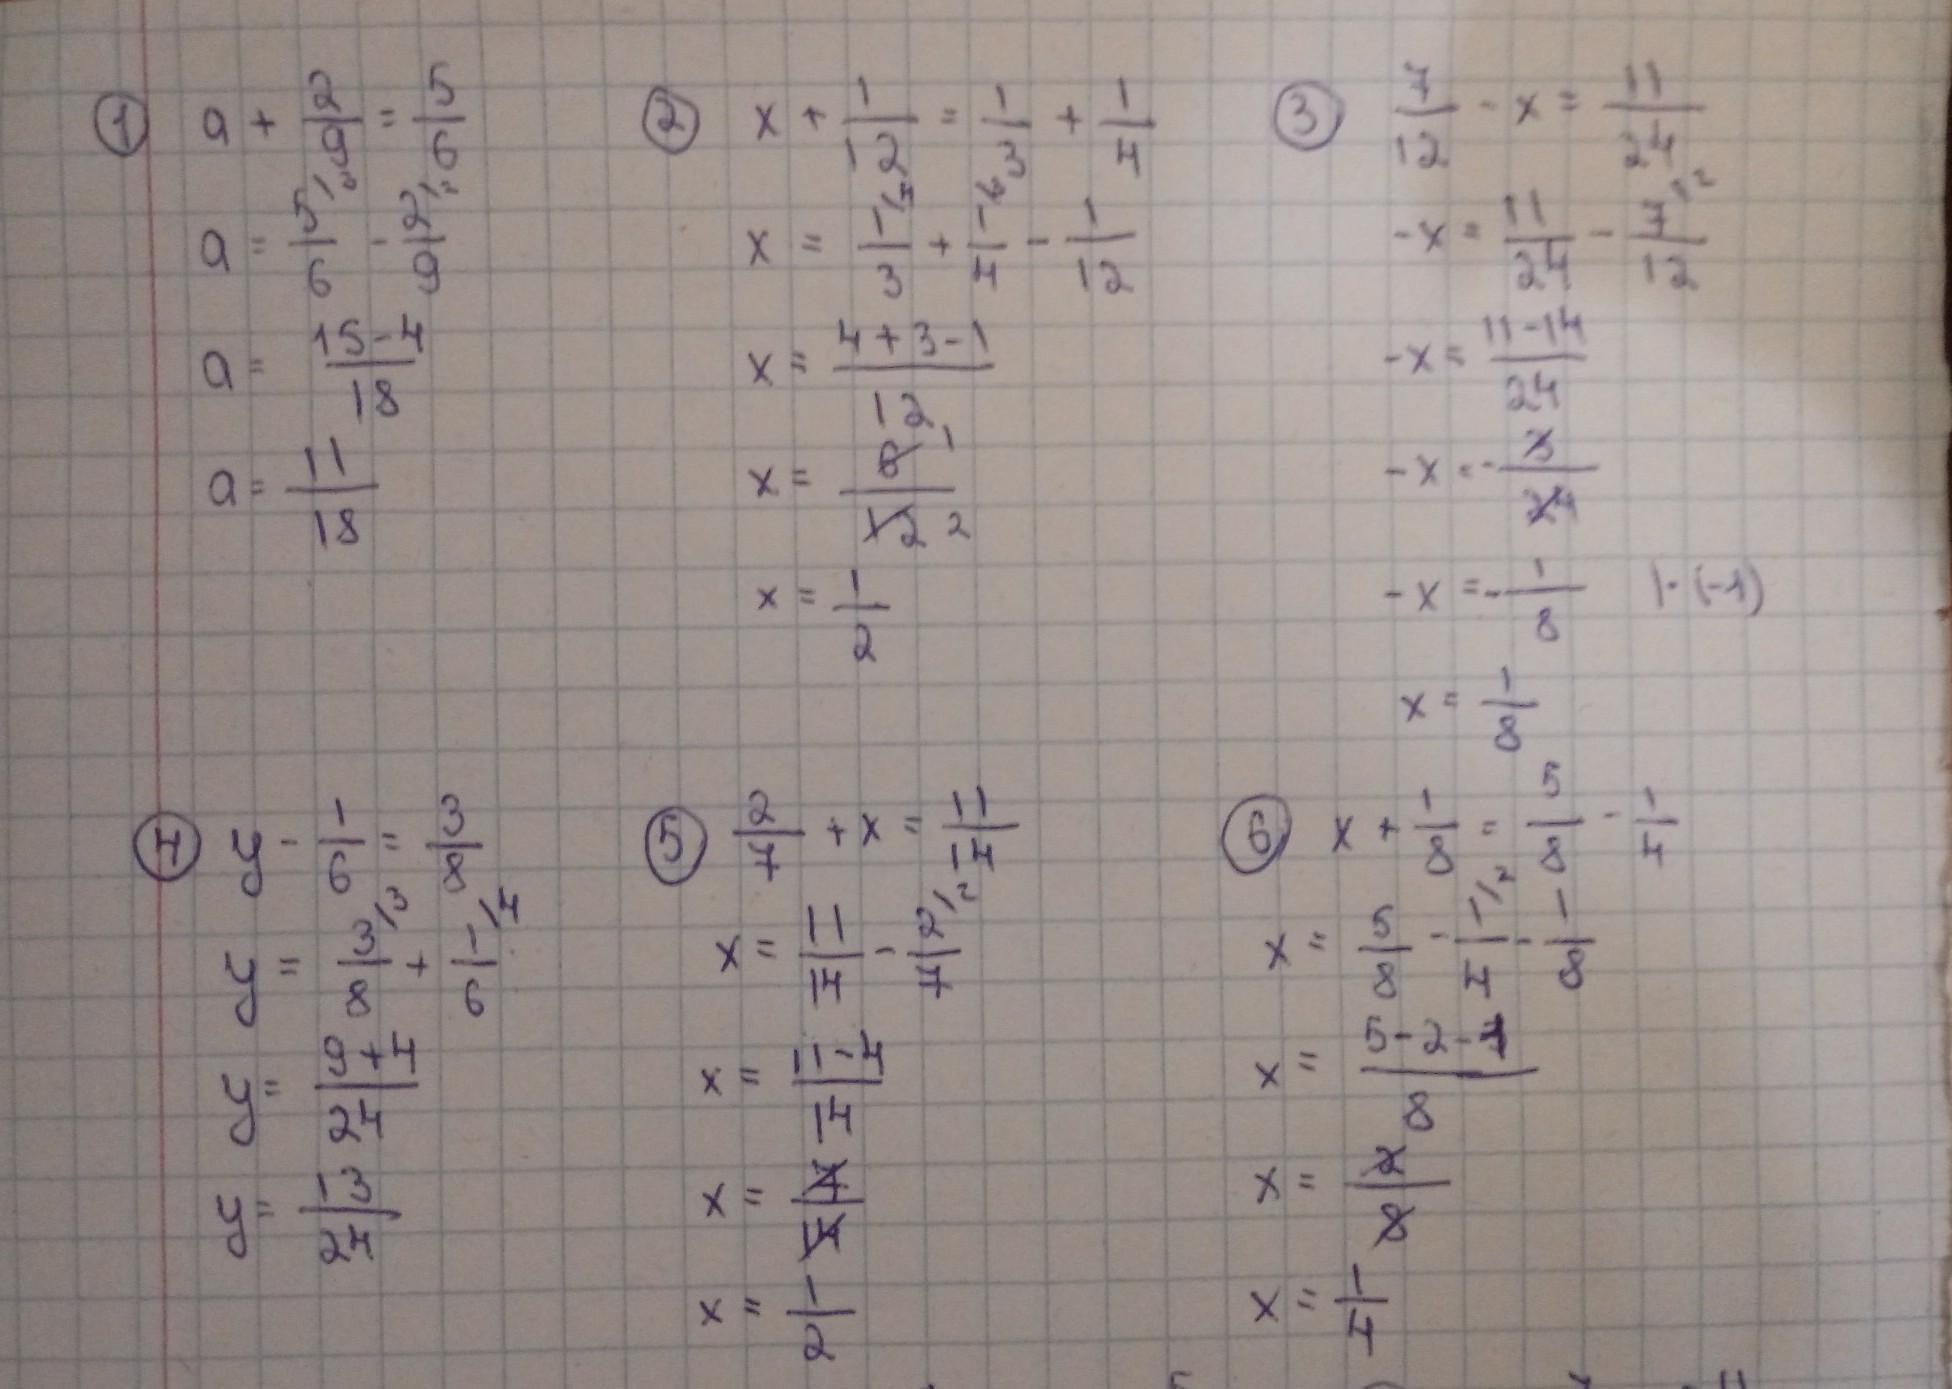 ① a + 2/9 = 5/6
a = 5/6 /3 - 2/9 /2
a = 15-4/18
a = 11/18
② x + 1/12 = 1/3 + 1/4
x = 1/3 /4 + 1/4 /3 - 1/12
x = 4+3-1/12
x = 6/12 1 2
x = 1/2
③ 7/12 - x = 11/24
-x = 11/24 - 7/12 /2
-x = 11-14/24
-x = -3/24
-x = -1/8 |·(-1)
x = 1/8
④ y - 1/6 = 3/8
y = 3/8 /3 + 1/6 /4
y = 9+4/24
y = 13/24
⑤ 2/7 + x = 11/14
x = 11/14 - 2/7 /2
x = 11-4/14
x = 7/14
x = 1/2
⑥ x + 1/8 = 5/8 - 1/4
x = 5/8 - 1/4 /2 - 1/8
x = 5-2-1/8
x = 2/8
x = 1/4